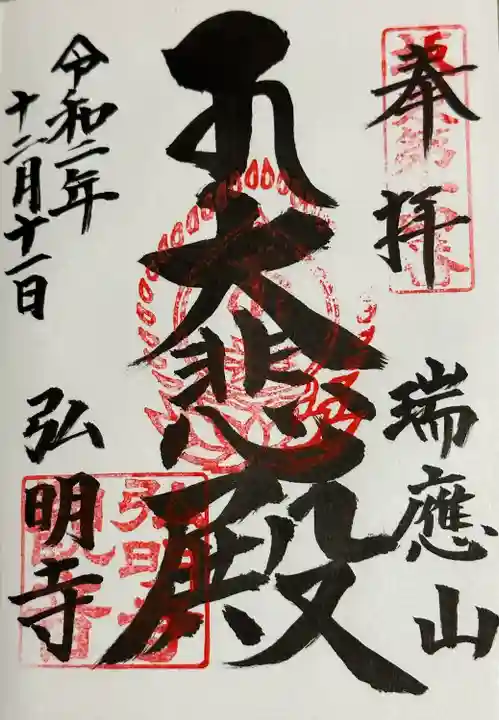 奉拝
瑞應山
大悲殿
令和二年
十二月十一日
弘明寺
弘明寺